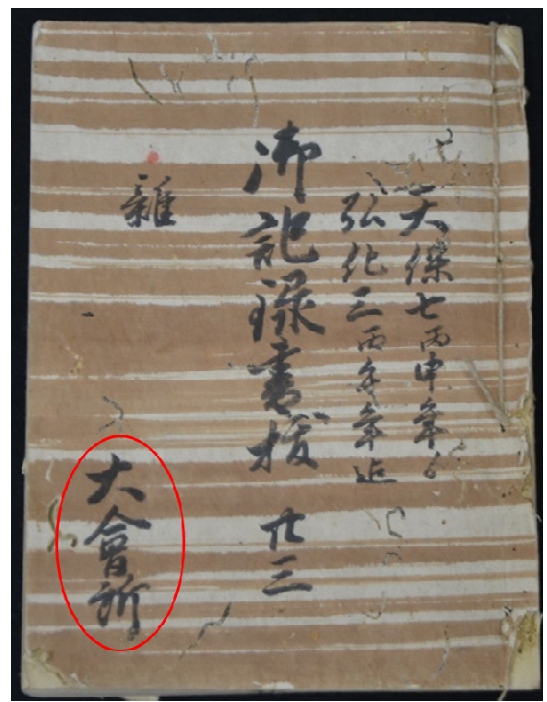 天保七丙申年ゟ
弘化三丙午年迄
御記録書抜 廿三
雑
大會所